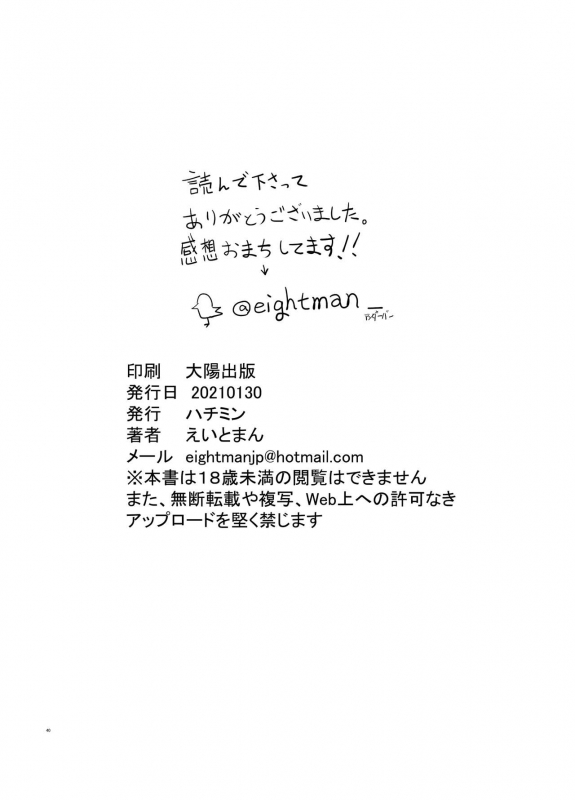 読んで下さって
ありがとうございました。
感想おまちしてます!!
↓
@eightman_
アンダーバー
印刷 大陽出版
発行日 20210130
発行 ハチミン
著者 えいとまん
メール eightmanjp@hotmail.com
※本書は18歳未満の閲覧はできません
また、無断転載や複写、Web上への許可なき
アップロードを堅く禁じます